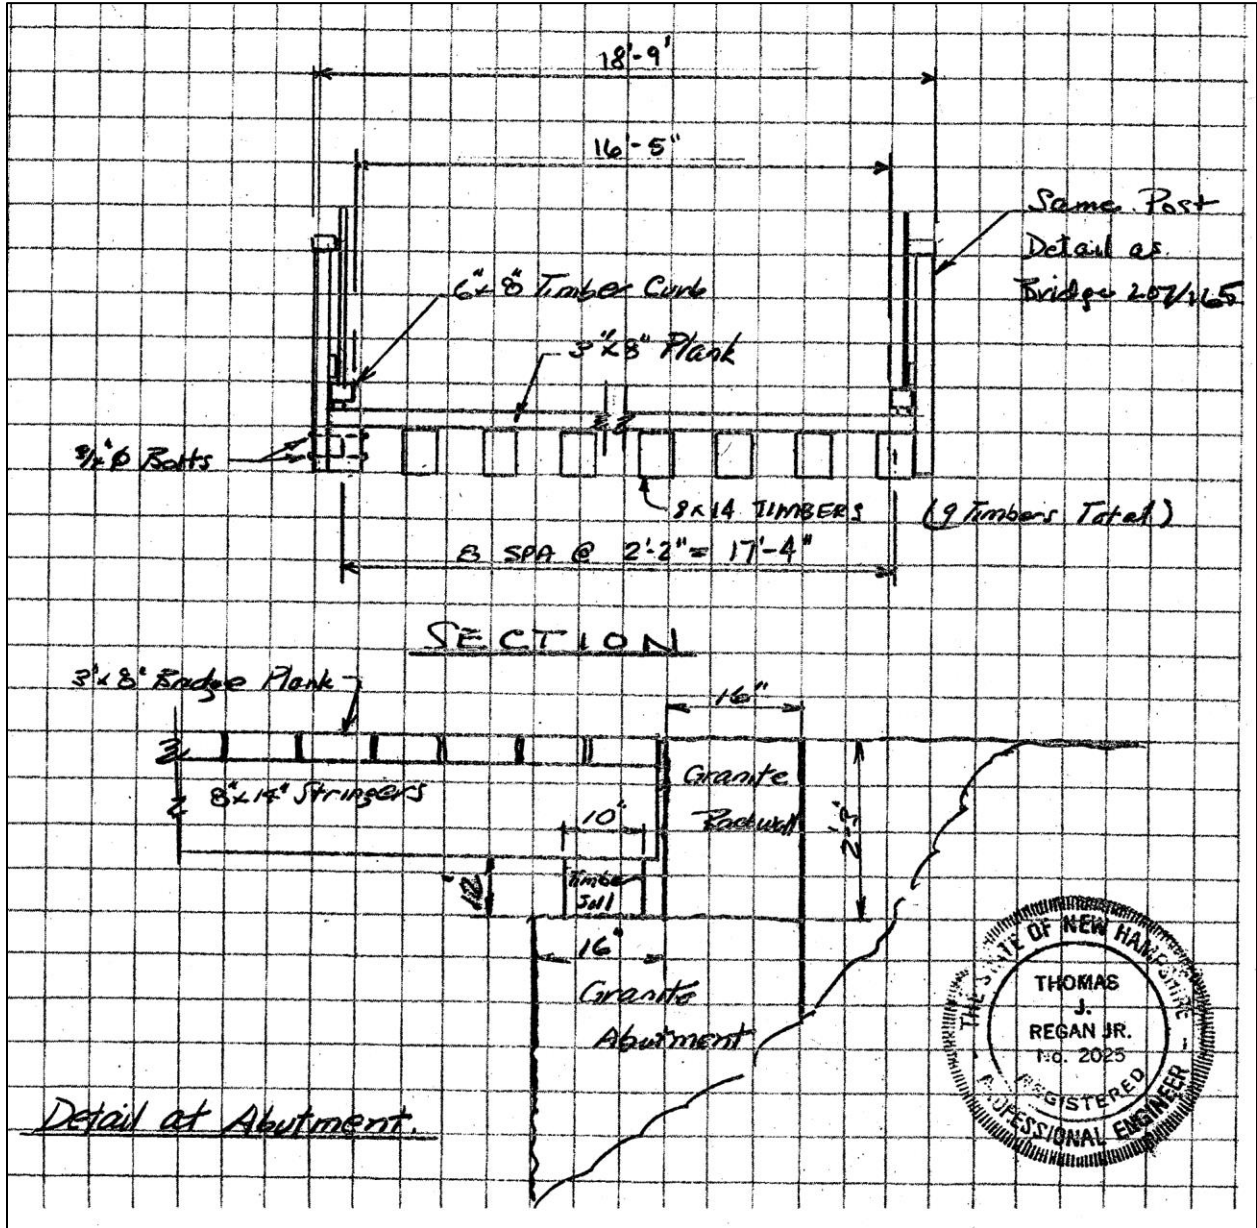 18'-9'
16'-5"
Same Post
Detail as
Bridge 207/165
6"x8" Timber Curb
3"x8" Plank
3/4" Ø Bolts
8x14 TIMBERS (9 Timbers Total)
8 SPA @ 2'-2" = 17'-4"
SECTION
3"x8" Bridge Plank
16"
8"x14" Stringers
Granite
Backwall
10"
2'-3"
12"
Timber
Sill
16"
Granite
Abutment
Detail at Abutment.
THE STATE OF NEW HAMPSHIRE
THOMAS
J.
REGAN JR.
No. 2025
REGISTERED
PROFESSIONAL ENGINEER